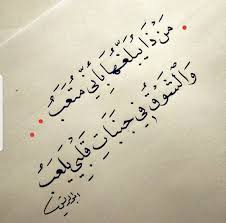 مَن ذَا يُبَلِّغُهَا بِأَنِّي مُتْعَبُ
وَالشَّوْقُ فِي جَنَبَاتِ قَلْبِي يَلْعَبُ